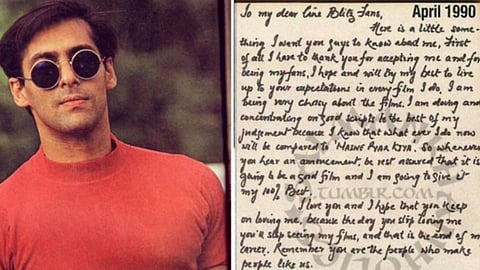 April 1990
To my dear Cine Blitz Fans,
Here is a little some-
thing I want you guys to know about me, First
of all I have to thank you for accepting me and for
being my fans, I hope and will try my best to live
up to your expectations in every film I do, I am
being very choisy about the films. I am doing and
concentrating on good scripts to the best of my
judgement because I know that what ever I do now
will be compared to "MAINE PYAR KIYA. So whenever
you hear an anncement, be rest assured that it is
going to be a good film and I am going to give it
my 100% Best.
I love you and I hope that you keep
on loving me, because the day you stop loving me
you'll stop seeing my films, and that is the end of my
career. Remember you are the people who make
people like us.
TUMBLR.COM